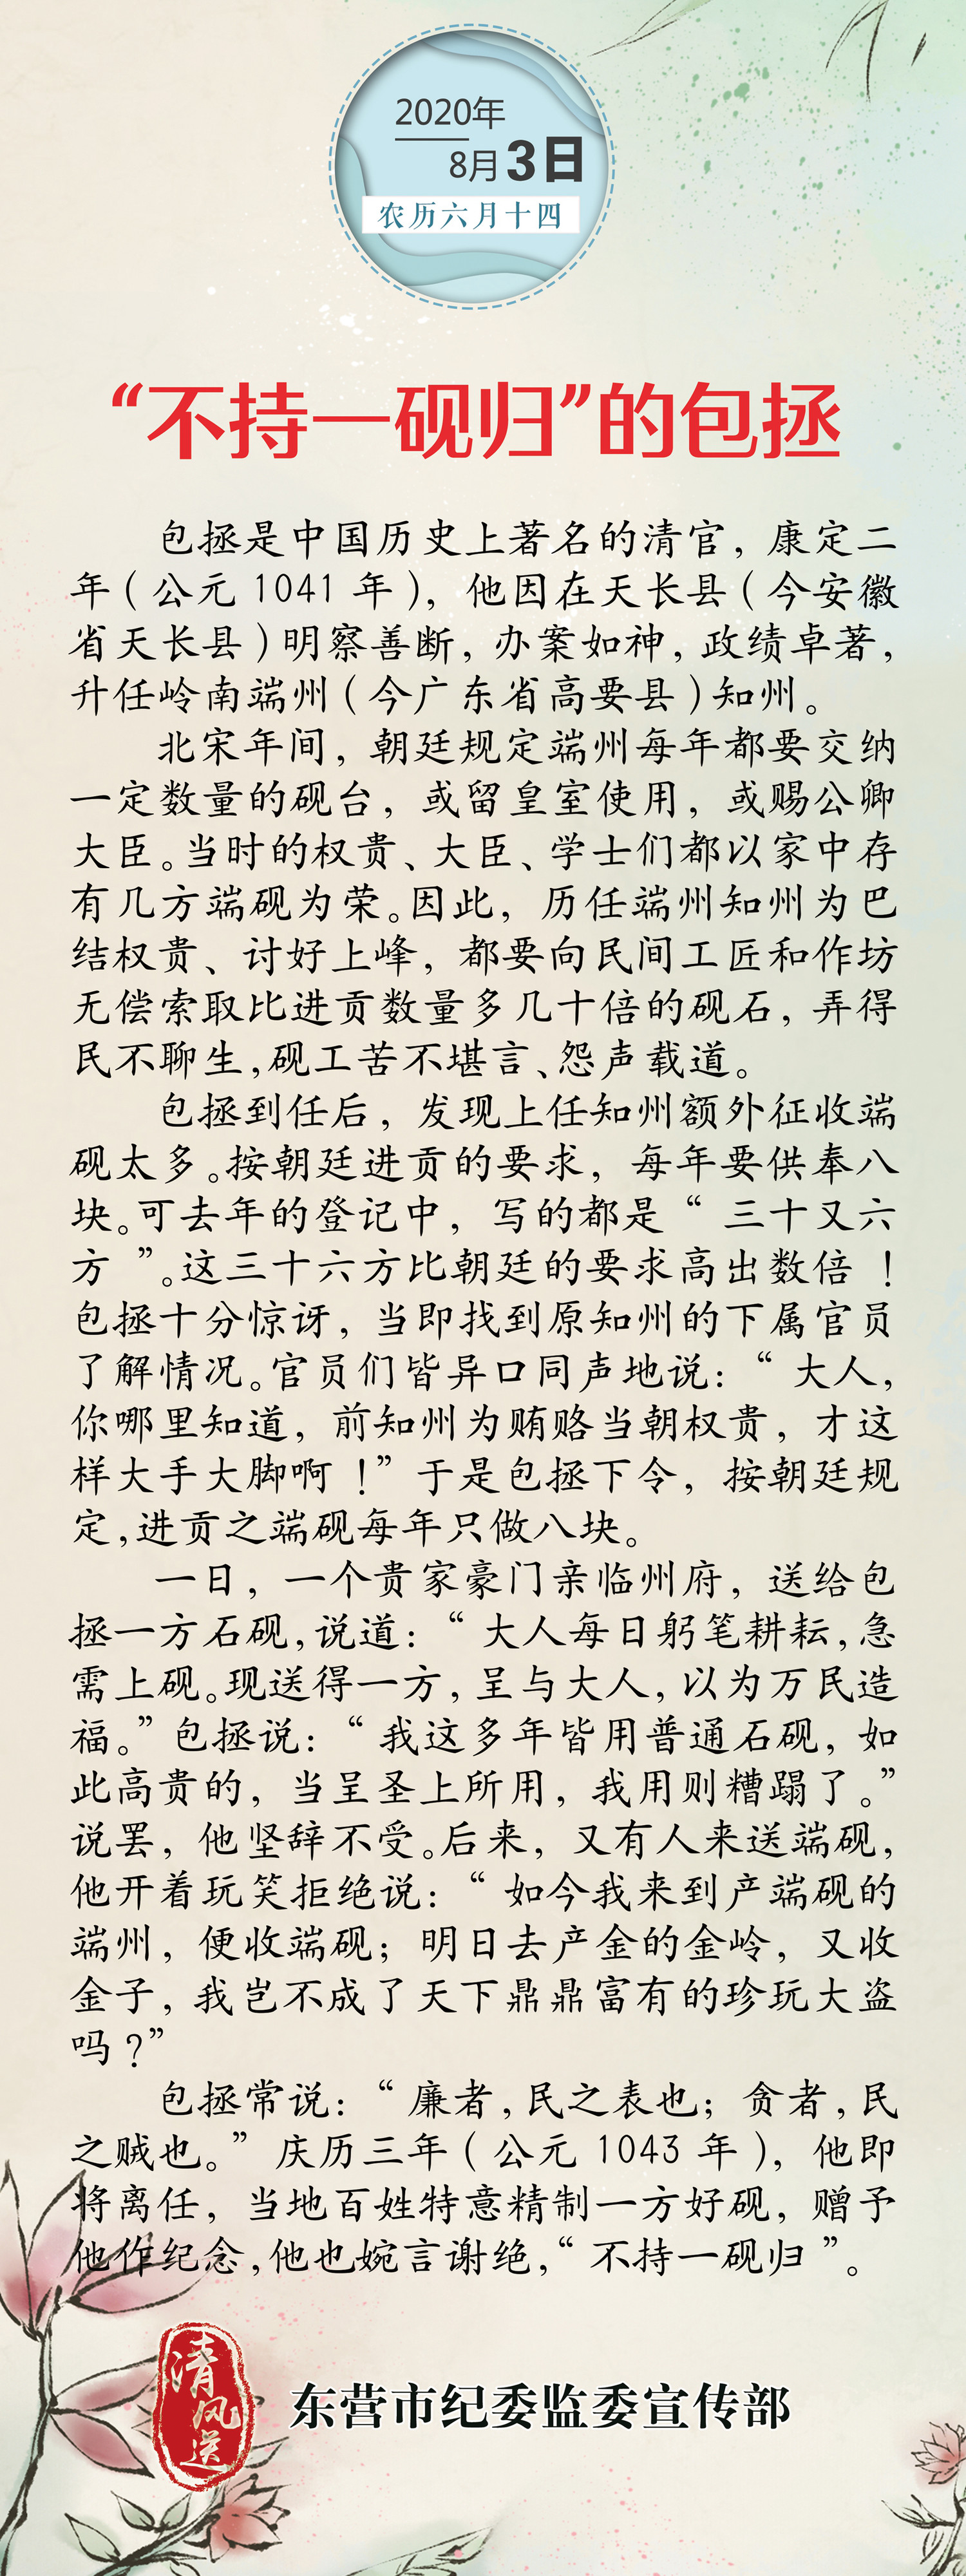 2020年
8月3日
农历六月十四
“不持一砚归”的包拯
包拯是中国历史上著名的清官，康定二
年（公元1041年），他因在天长县（今安徽
省天长县）明察善断，办案如神，政绩卓著，
升任岭南端州（今广东省高要县）知州。
北宋年间，朝廷规定端州每年都要交纳
一定数量的砚台，或留皇室使用，或赐公卿
大臣。当时的权贵、大臣、学士们都以家中存
有几方端砚为荣。因此，历任端州知州为巴
结权贵、讨好上峰，都要向民间工匠和作坊
无偿索取比进贡数量多几十倍的砚石，弄得
民不聊生，砚工苦不堪言、怨声载道。
包拯到任后，发现上任知州额外征收端
砚太多。按朝廷进贡的要求，每年要供奉八
块。可去年的登记中，写的都是“三十又六
方”。这三十六方比朝廷的要求高出数倍！
包拯十分惊讶，当即找到原知州的下属官员
了解情况。官员们皆异口同声地说：“大人，
你哪里知道，前知州为贿赂当朝权贵，才这
样大手大脚啊！”于是包拯下令，按朝廷规
定，进贡之端砚每年只做八块。
一日，一个贵家豪门亲临州府，送给包
拯一方石砚，说道：“大人每日躬笔耕耘，急
需上砚。现送得一方，呈与大人，以为万民造
福。”包拯说：“我这多年皆用普通石砚，如
此高贵的，当呈圣上所用，我用则糟蹋了。”
说罢，他坚辞不受。后来，又有人来送端砚，
他开着玩笑拒绝说：“如今我来到产端砚的
端州，便收端砚；明日去产金的金岭，又收
金子，我岂不成了天下鼎鼎富有的珍玩大盗
吗？”
包拯常说：“廉者，民之表也；贪者，民
之贼也。”庆历三年（公元1043年），他即
将离任，当地百姓特意精制一方好砚，赠予
他作纪念，他也婉言谢绝，“不持一砚归”。
清风送
东营市纪委监委宣传部